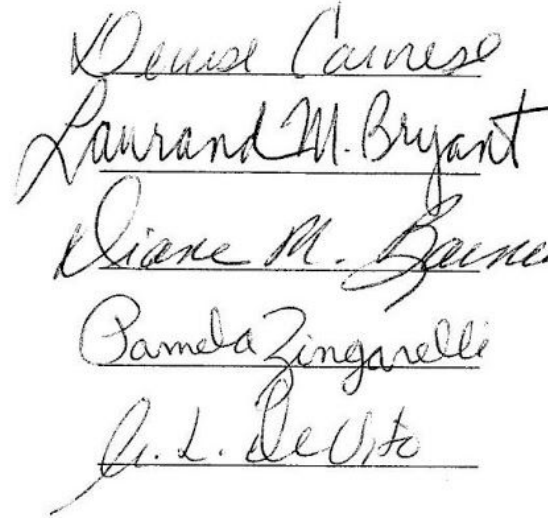 Denise Carnese
Laurand M. Bryant
Diane M.
Pamela Zingarelli
De Vito